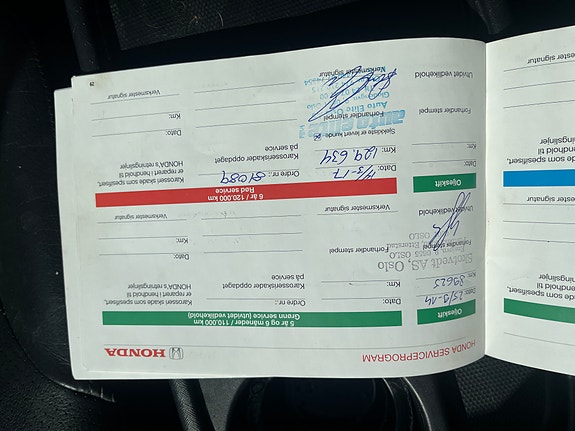 HONDA SERVICEPROGRAM
HONDA
Oljeskift
Dato: 25/9-14
Km: 39625
Skotvedt AS, Oslo
0655 OSLO
Forhandler stempel
Utvidet vedlikehold
5 år og 6 måneder / 110.000 km
Grønn service (utvidet vedlikehold)
Dato:
Ordre :.nr:
Km:
Karosseriskader oppdaget
på service
Karosseri skade som spesifisert,
er reparert i henhold til
HONDA's retningslinjer
Dato:
Km:
Forhandler stempel
Verksmester signatur
Oljeskift
Dato: 14/3-17
Km: 129.634
Sjekkliste er levert kunde
Forhandler stempel
Auto Elite
Verksmester signatur
Utvidet vedlikehold
6 år / 120.000 km
Rød service
Ordre :.nr: 810989
Karosseriskader oppdaget
på service
Karosseri skade som spesifisert,
er reparert i henhold til
HONDA's retningslinjer
Dato:
Km:
Forhandler stempel
Verksmester signatur